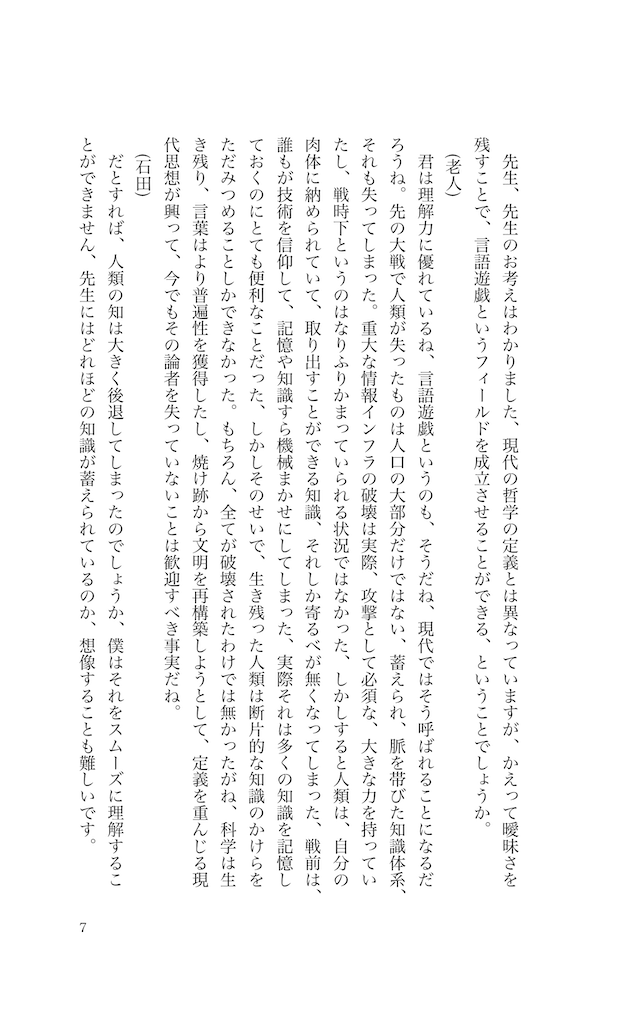 先生、先生のお考えはわかりました、現代の哲学の定義とは異なっていますが、かえって曖昧さを
残すことで、言語遊戯というフィールドを成立させることができる、ということでしょうか。
(老人)
君は理解力に優れているね、言語遊戯というのも、そうだね、現代ではそう呼ばれることになるだ
ろうね。先の大戦で人類が失ったものは人口の大部分だけではない、蓄えられ、脈を帯びた知識体系、
それも失ってしまった。重大な情報インフラの破壊は実際、攻撃として必須な、大きな力を持ってい
たし、戦時下というのはなりふりかまっていられる状況ではなかった、しかしすると人類は、自分の
肉体に納められていて、取り出すことができる知識、それしか寄るべが無くなってしまった、戦前は、
誰もが技術を信仰して、記憶や知識すら機械まかせにしてしまった、実際それは多くの知識を記憶し
ておくのにとても便利なことだった、しかしそのせいで、生き残った人類は断片的な知識のかけらを
ただみつめることしかできなかった。もちろん、全てが破壊されたわけでは無かったがね、科学は生
き残り、言葉はより普遍性を獲得したし、焼け跡から文明を再構築しようとして、定義を重んじる現
代思想が興って、今でもその論者を失っていないことは歓迎すべき事実だね。
(石田)
だとすれば、人類の知は大きく後退してしまったのでしょうか、僕はそれをスムーズに理解するこ
とができません、先生にはどれほどの知識が蓄えられているのか、想像することも難しいです。
7